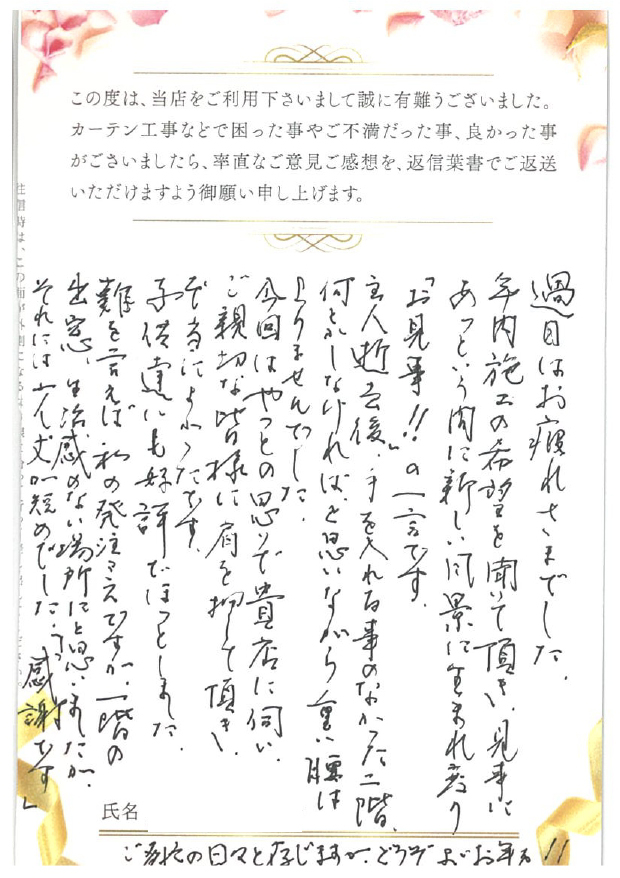 この度は、当店をご利用下さいまして誠に有難うございました。
カーテン工事などで困った事やご不満だった事、良かった事
がございましたら、率直なご意見ご感想を、返信葉書でご返送
いただけますよう御願い申し上げます。
過日はお疲れさまでした.
年内施工の希望を聞いて頂き、見事に
あっという間に新しい風景に生まれ変り
「お見事!!」の一言です.
主人逝去後、手を入れる事のなかった二階、
何とかしなければ、と思いながら重い腰は
上りませんでした.
今回はやっとの思いで貴店に伺い、
ご親切な皆様に肩を押して頂き、
本当によかったです.
子供達にも好評でほっとしました.
難を言えば私の発注ミスですが、一階の
出窓、生活感のない場所にと思いましたが、
それには丈が短めでした.
「感謝です」
氏名
の日々と存じますが、どうぞよいお年を!!